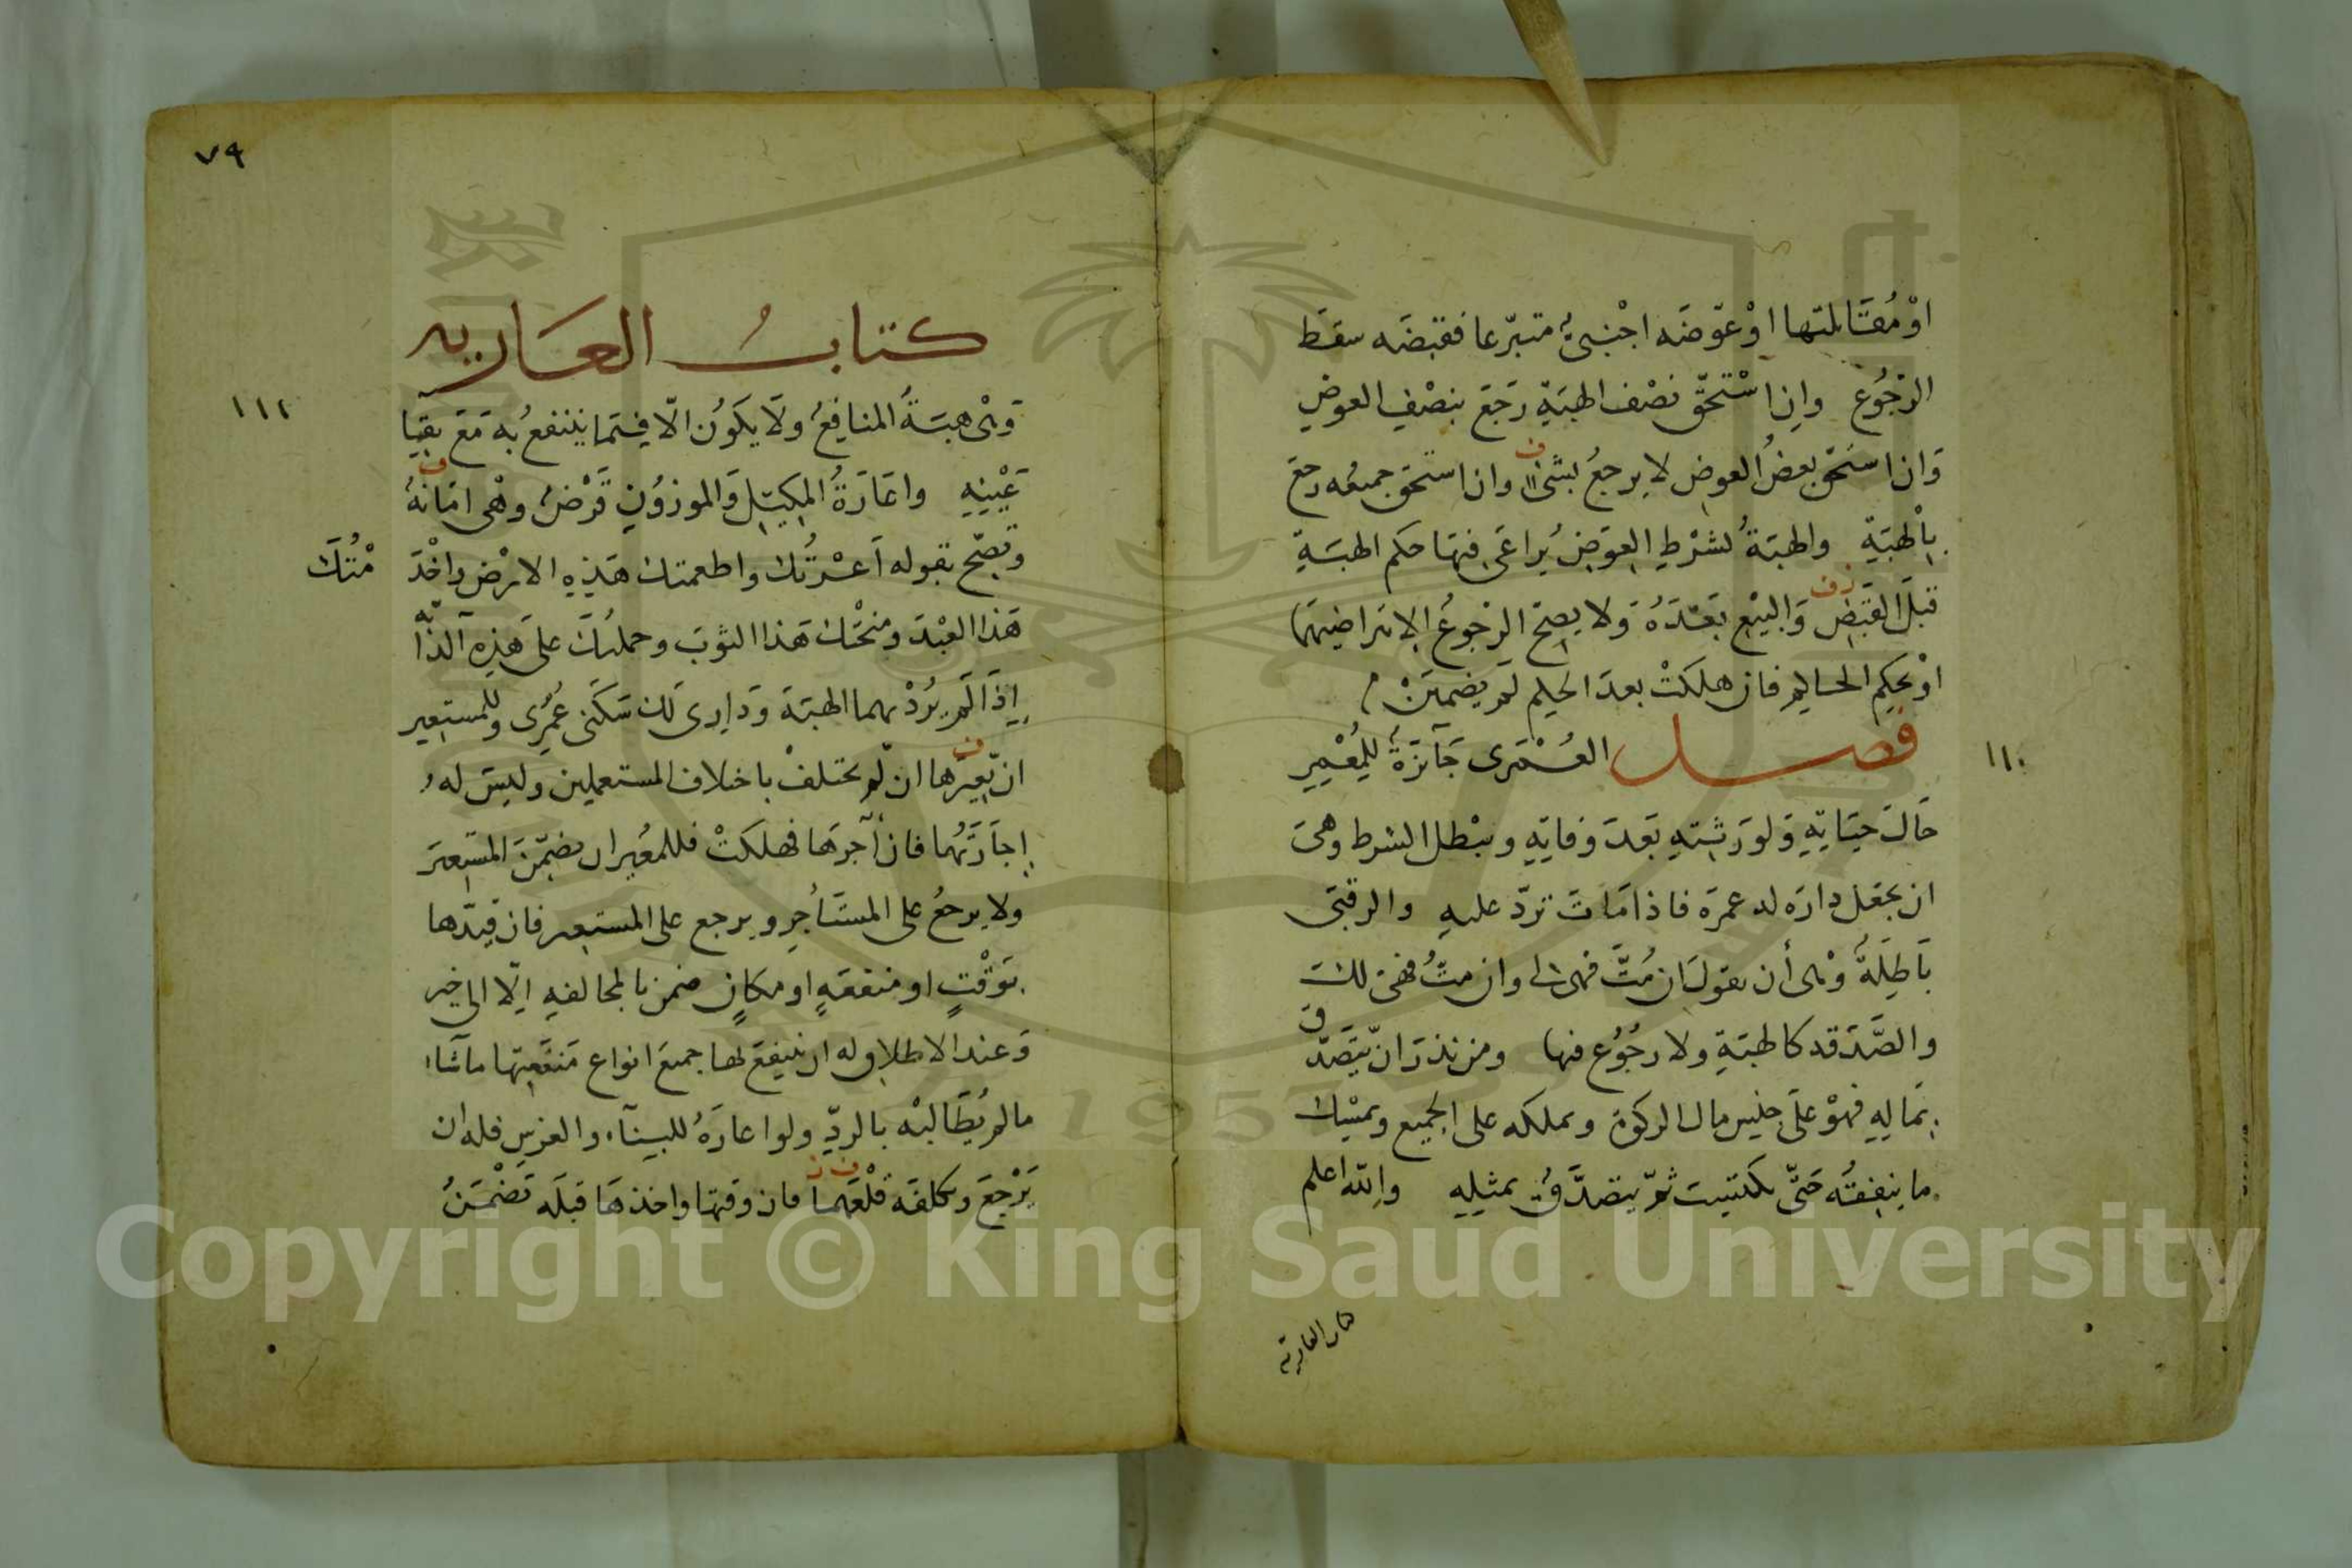 او مُقابلتها اوْ عوّضَه اجْنبىٌّ متبرّعا فقبضَه سقَط
الرّجُوع وانِ اسْتحقّ نصْف الهبَةِ رَجَعَ بنصْفِ العوضِ
وَان استحق بعضُ العوضِ لا يرجعُ بشئ وان استحق جميعُه رجع
بالْهبَةِ والهبَةُ بشرْطِ العِوَضِ يُراعَى فيهَا حكم الهبَةِ
قبلَ القبَضِ وَالبيْعِ بَعْدَهُ وَلا يصِحّ الرّجوعُ الا بتراضيهَما
اوْ بحكم الحاكم فان هلكَتْ بعدَ الحكم لَم يضمَنْ
فصل العُمْرَى جَآئزَةٌ للِمُعْمَرِ
حَالَ حيَاتِهِ وَلورَثتِهِ بَعدَ وَفاتِهِ ويبْطل الشرط وهىَ
ان يجعَل دارَه له عمرَه فاذا مَاتَ تردّ عليهِ والرقبَى
بَاطِلَةٌ وَهْى أن يقولَ ان مُتَّ فهى لى وان متُّ فهىَ لكَ
والصَّدَقه كالهبَةِ ولا رجُوُع فيها ومن نذرَ ان يّتصَدّق
بمَالِهِ فهوْ علَى جنس مال الزكوة وبملكه على الجميع ويمسْك
ما ينفِقُه حَتّى يكتسِبَ ثمّ يتصَدَّقُ بمثلِهِ والله اعلم
كتاب العارية
١١٠
٧٩
كتابُ العَاريه
١١١
وَهْى هبَةُ المنافِعِ ولَا يكَوُن الّا فيمَا ينتفعُ بِه مَعَ بقَآءِ
عَيْنِهِ واعَارَةُ المكِيْلِ وَالموزوُنِ قَرْضٌ وهْى امَانةٌ
وتصّح بقوله أعَرْتُك واطعمتك هَذِهِ الارْض واخْدَ
مْتُكَ
هَذا العبْدَ ومنحْتك هَذا الثوبَ وحملتكَ علَى هَذِهِ الدّآبه
اِذَا لَم يُرِدْ بهما الهبَةَ وَدَارِى لَك سَكَنى عُمْرِى وللمستعِير
ان يّعِيْرَها ان لّم يختلفْ باختلاف المستعملين وليسَ له
اجَارَتُهَا فان آجرَها فهلكَتْ فللمعُير ان يضمّنَ المستعِيرَ
ولا يرجعُ على المستَأجِر ويرجع على المستعير فان قيّدها
بوَقْتٍ او منفعَةٍ او مكانٍ ضمن بالمخالفةِ الّا الى خير
وَعند الاطلاق له ان ينتفعَ بها جميعَ انواع منَفعَتها ما شآء
مالم يُطَالبْه بالردِّ ولو اعارَهُ للبنآء والغرس فله ان
يَرْجعَ ويكلفَه قلْعَهما فان وقتها واخذهَا قبلَه تضْمَنُ